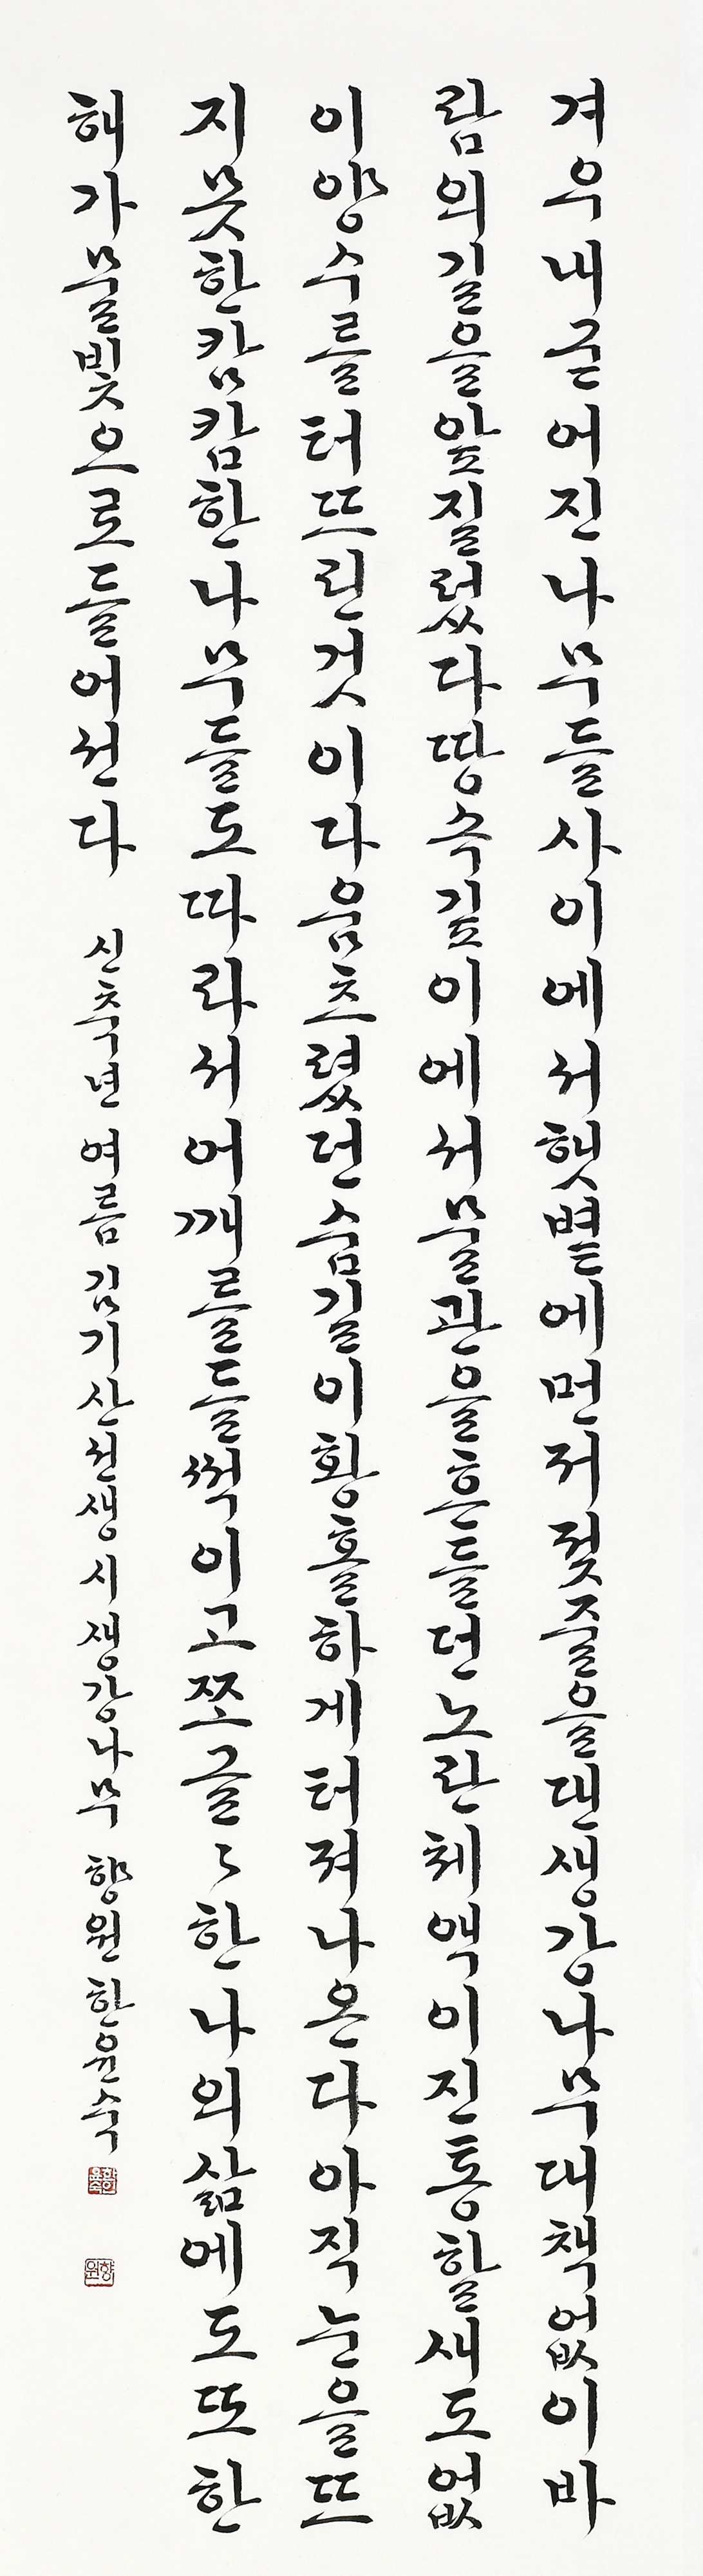 겨우내굳어진나무들사이에서햇볕에먼저젖줄을댄생강나무대책없이바
람의길을앞질렀다땅속깊이에서물관을흔들던노란체액이진통할새도없
이양수를터뜨린것이다움츠렸던숨길이황홀하게터져나온다아직눈을뜨
지못한캄캄한나무들도따라서어깨를들썩이고쪼글〻한나의삶에도또한
해가물빛으로들어선다 신축년 여름 김기산선생시 생강나무 향원 한윤숙